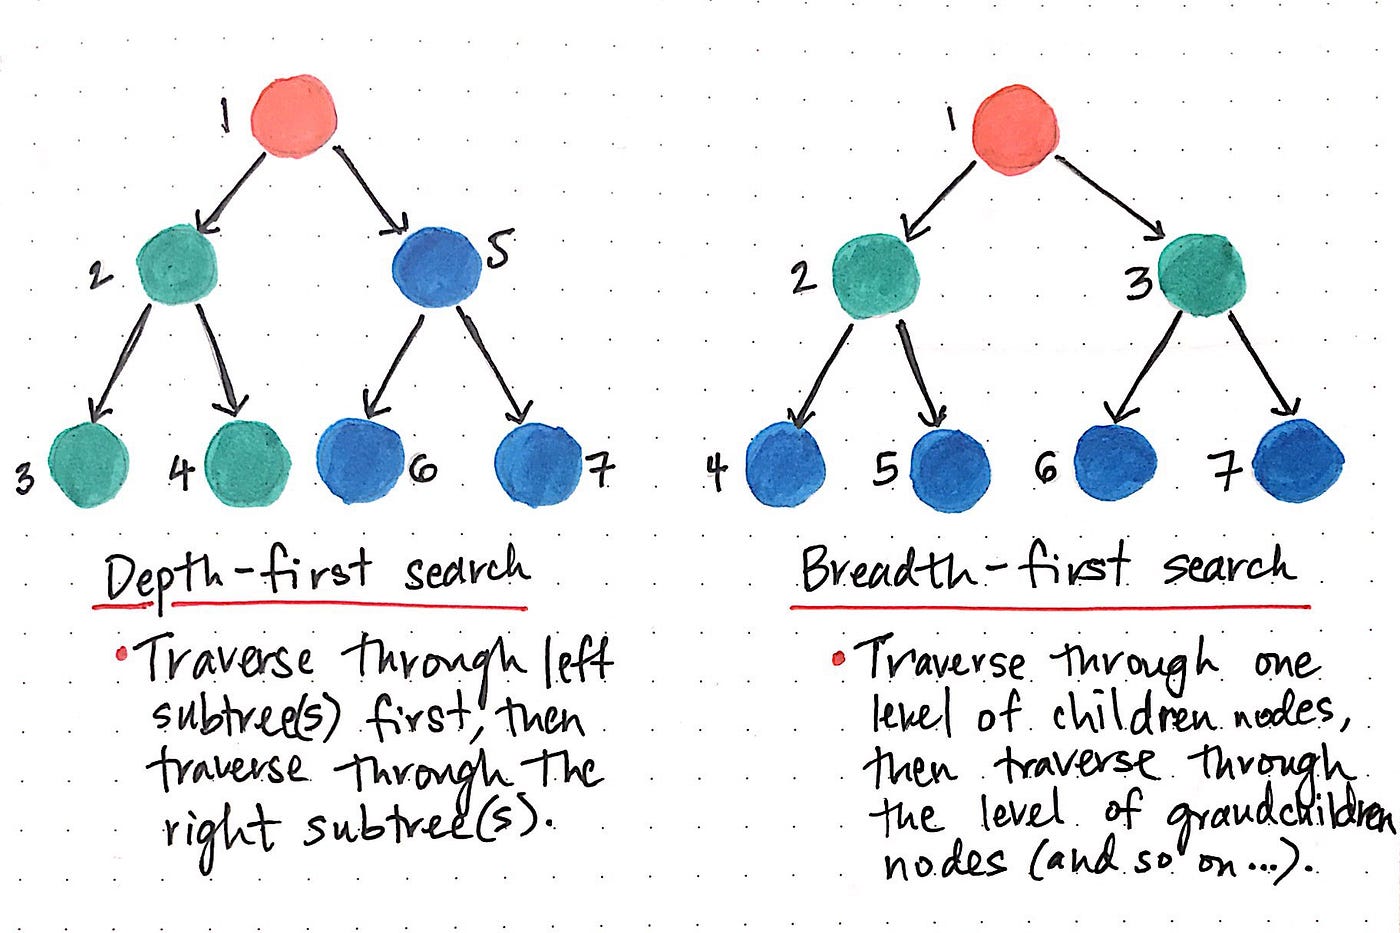 1
2
5
3
4
6
7
Depth-first search
• Traverse through left
subtree(s) first, then
traverse through the
right subtree(s).
1
2
3
4
5
6
7
Breadth-first search
• Traverse through one
level of children nodes,
then traverse through
the level of grandchildren
nodes (and so on...).